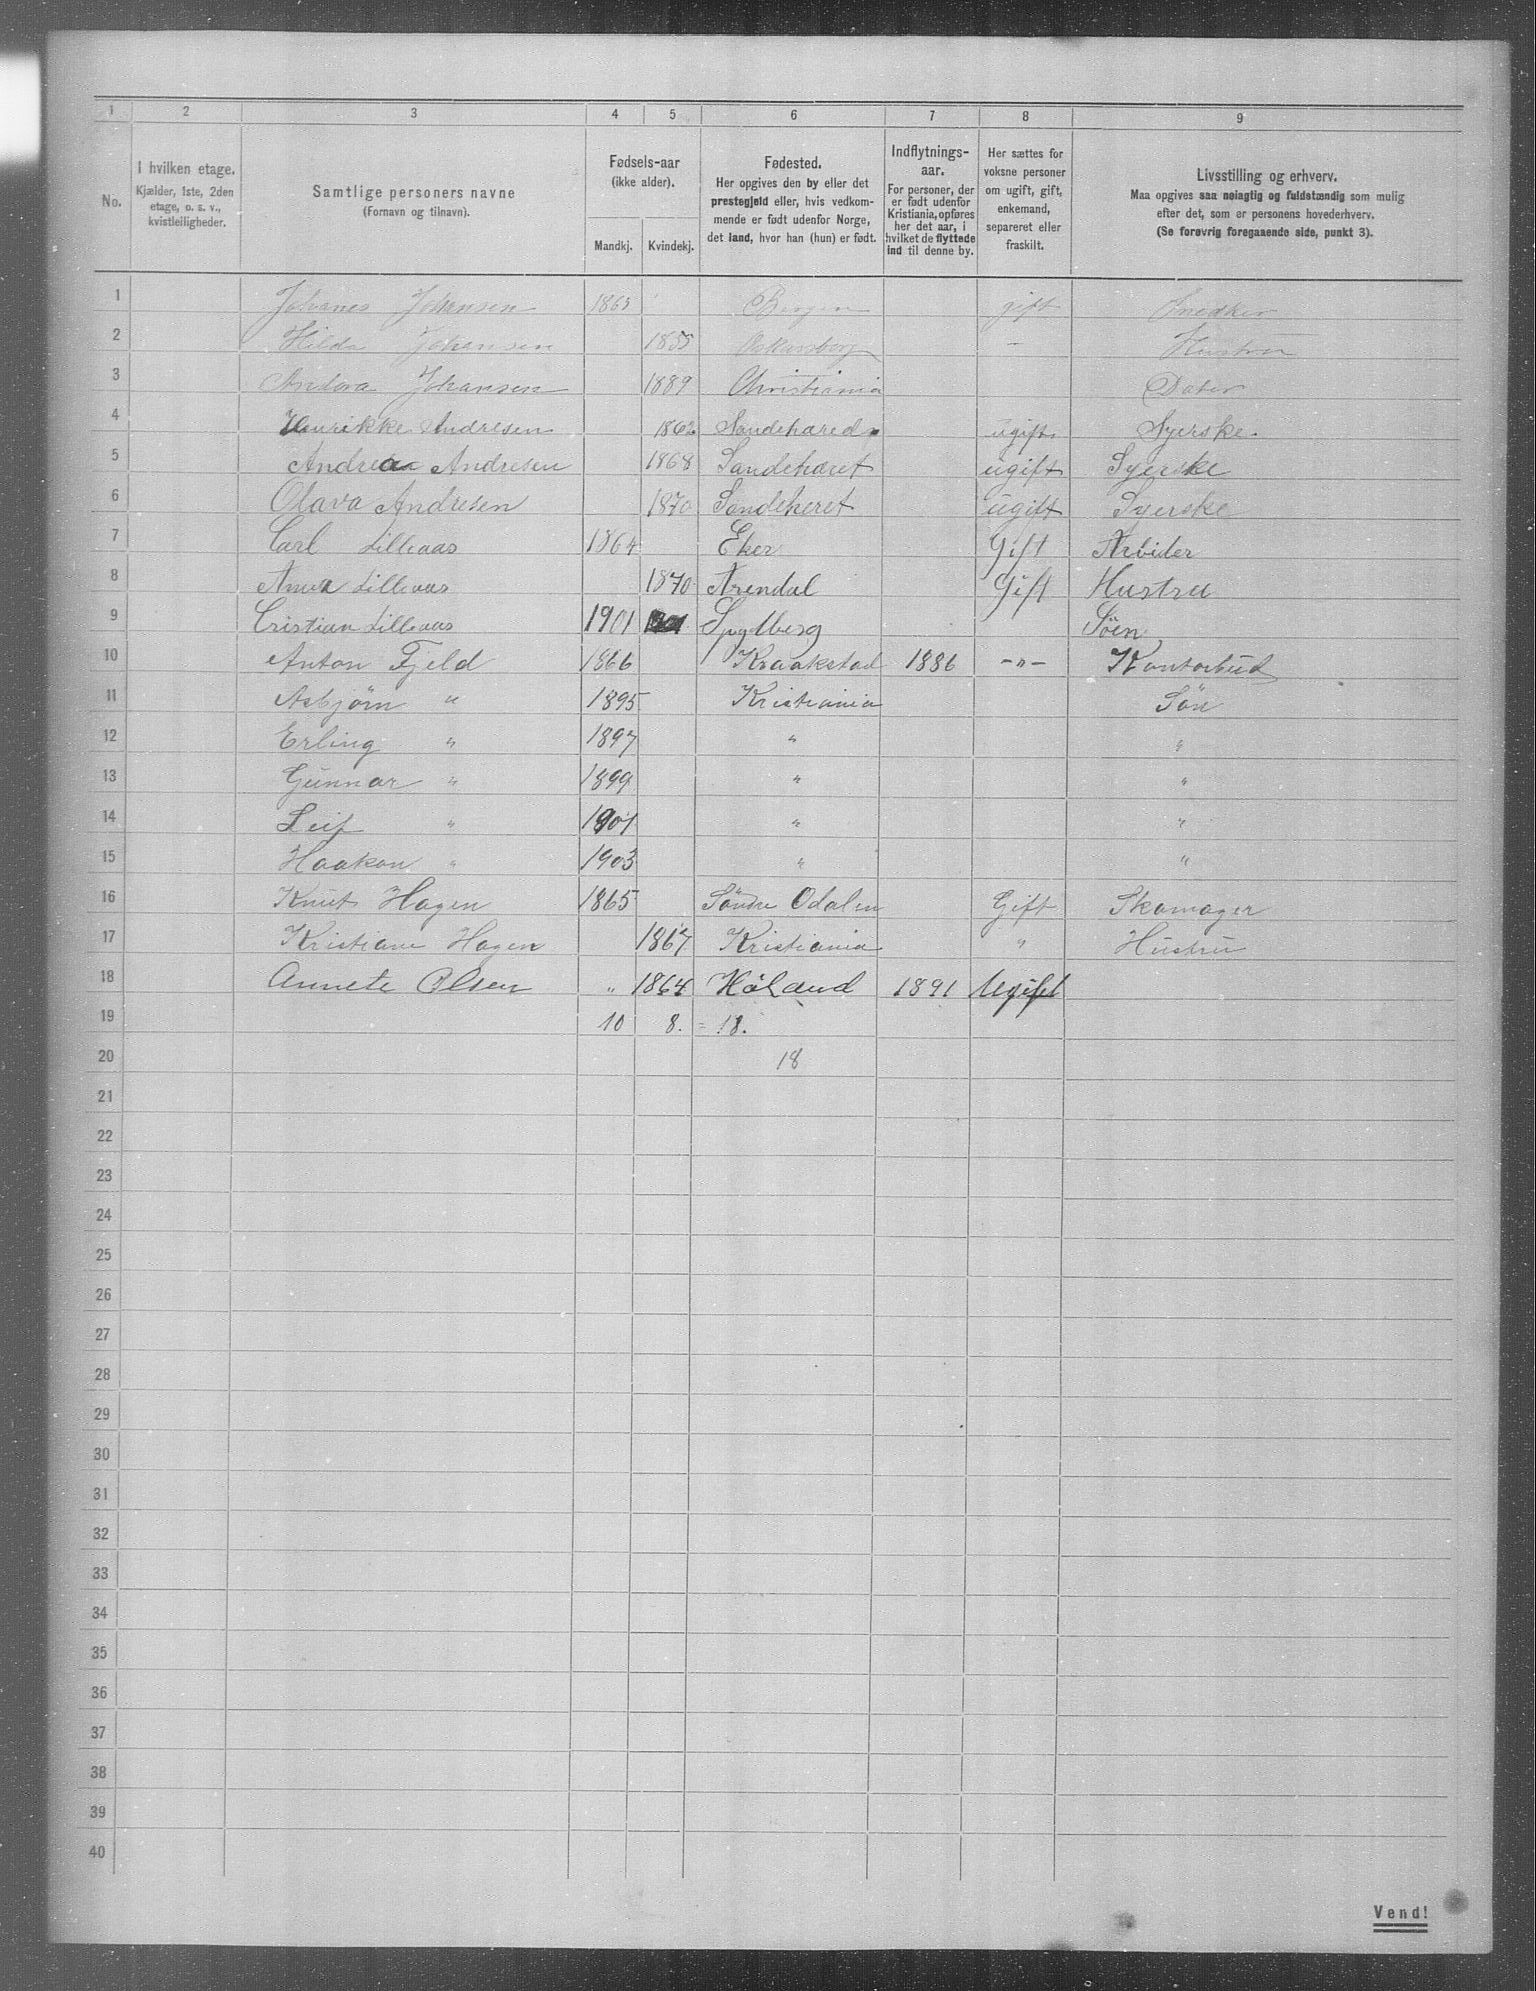 1 2 3 4 5 6 7 8 9
No.
I hvilken etage.
Kjælder, 1ste, 2den
etage, o. s. v.,
kvistleiligheder.
Samtlige personers navne
(Fornavn og tilnavn).
Fødsels-aar
(ikke alder).
Mandkj. Kvindekj.
Fødested.
Her opgives den by eller det
prestegjeld eller, hvis vedkom-
mende er født udenfor Norge,
det land, hvor han (hun) er født.
Indflytnings-
aar.
For personer, der
er født udenfor
Kristiania, opføres
her det aar, i
hvilket de flyttede
ind til denne by.
Her sættes for
voksne personer
om ugift, gift,
enkemand,
separeret eller
fraskilt.
Livsstilling og erhverv.
Maa opgives saa nøiagtig og fuldstændig som mulig
efter det, som er personens hovederhverv.
(Se forøvrig foregaaende side, punkt 3).
1 Johanes Johansen 1865 Bergen gift Snedker
2 Hilda Johansen 1855 Oskarsborg - Hustru
3 Andora Johansen 1889 Christiania Dater
4 Henrikke Andresen 1862 Sandehered ugift Syerske.
5 Andrea Andresen 1868 Sandehæret ugift Syerske
6 Olava Andresen 1870 Sandeheret ugift Syerske
7 Carl Lilleaas 1864 Eker Gift Arbider
8 Anna Lilleaas 1870 Arendal Gift Hustru
9 Cristian Lilleaas 1901 Spydberg Søen
10 Anton Fjeld 1866 Kraakstad 1886 -"- Kontorbud
11 Asbjörn " 1895 Kristiania Sön
12 Erling " 1897 " "
13 Gunnar " 1899 " "
14 Leif " 1901 " "
15 Haakon " 1903 " "
16 Knut Hagen 1865 Söndre Odalen Gift Skomager
17 Kristiane Hagen 1867 Kristiania " Hustru
18 Annete Olsen " 1864 Høland 1891 Ugift
19 10 8. = 18.
20 18
21
22
23
24
25
26
27
28
29
30
31
32
33
34
35
36
37
38
39
40
Vend!